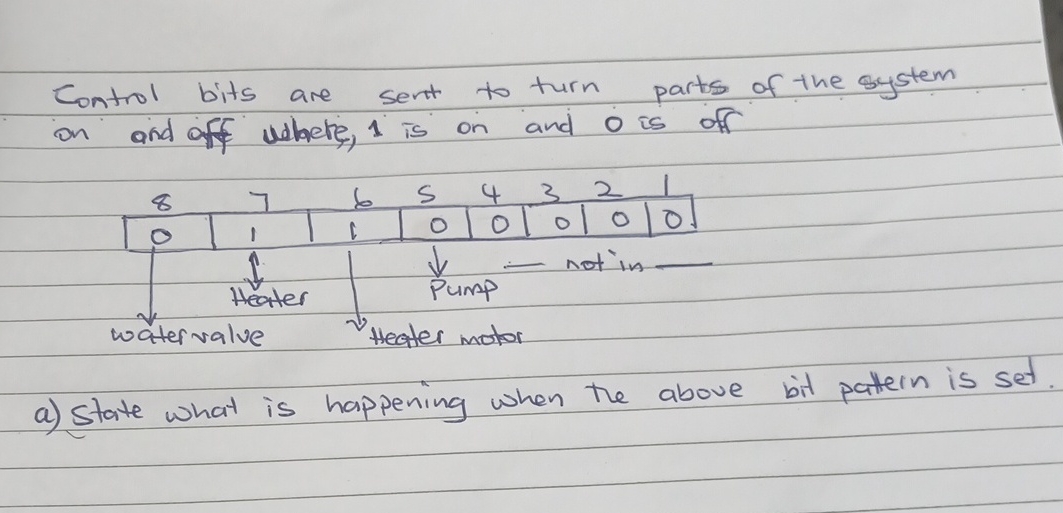 Control bits are sent to turn parts of the system
on and off where, 1 is on and 0 is off
8 7 6 5 4 3 2 1
0 1 1 0 0 0 0 0
not in
Heater Pump
water valve Heater motor
a) State what is happening when the above bit pattern is set.